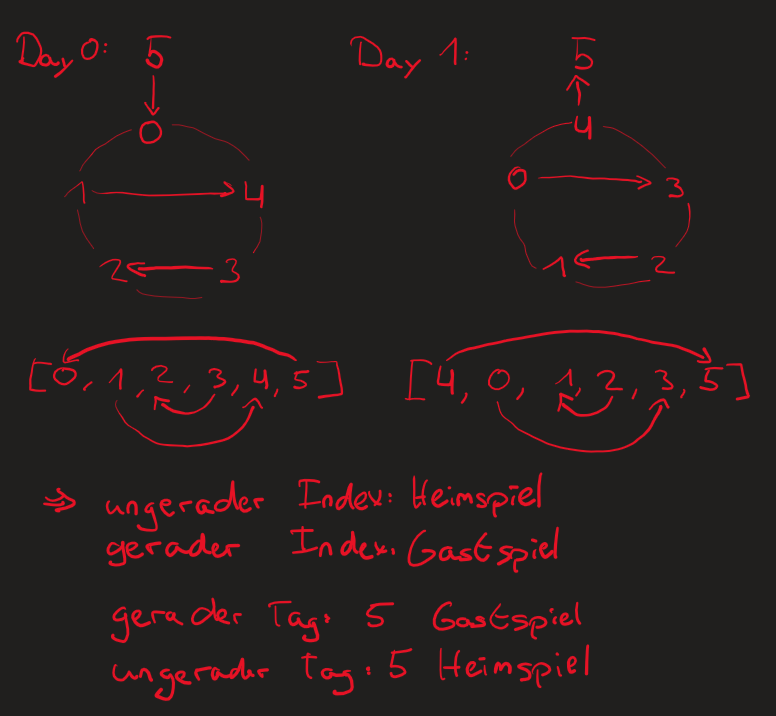 Day 0: 5
0
1 4
2 3
[0, 1, 2, 3, 4, 5]
Day 1: 5
4
0 3
1 2
[4, 0, 1, 2, 3, 5]
⇒ ungerader Index: Heimspiel
gerader Index: Gastspiel
gerader Tag: 5 Gastspiel
ungerader Tag: 5 Heimspiel